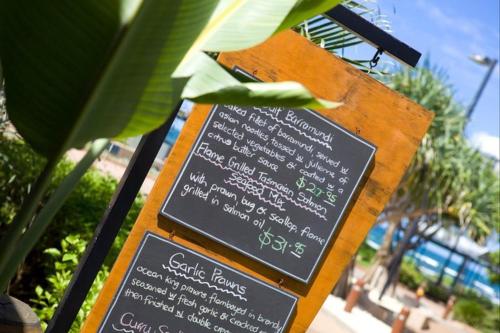 Barramundi
Baked fillet of barramundi, served w
asian noodles, tossed w julienne of
selected vegetables & coated w a
citrus butter sauce $27.95
Flame Grilled Tasmanian Salmon
Seafood Mix
with prawn, bug & scallop, flame
grilled in salmon oil
$31.95
Garlic Prawns
ocean king prawns flamboyed in brandy
seasoned w fresh garlic & cracked
then finished w double cream
Curry